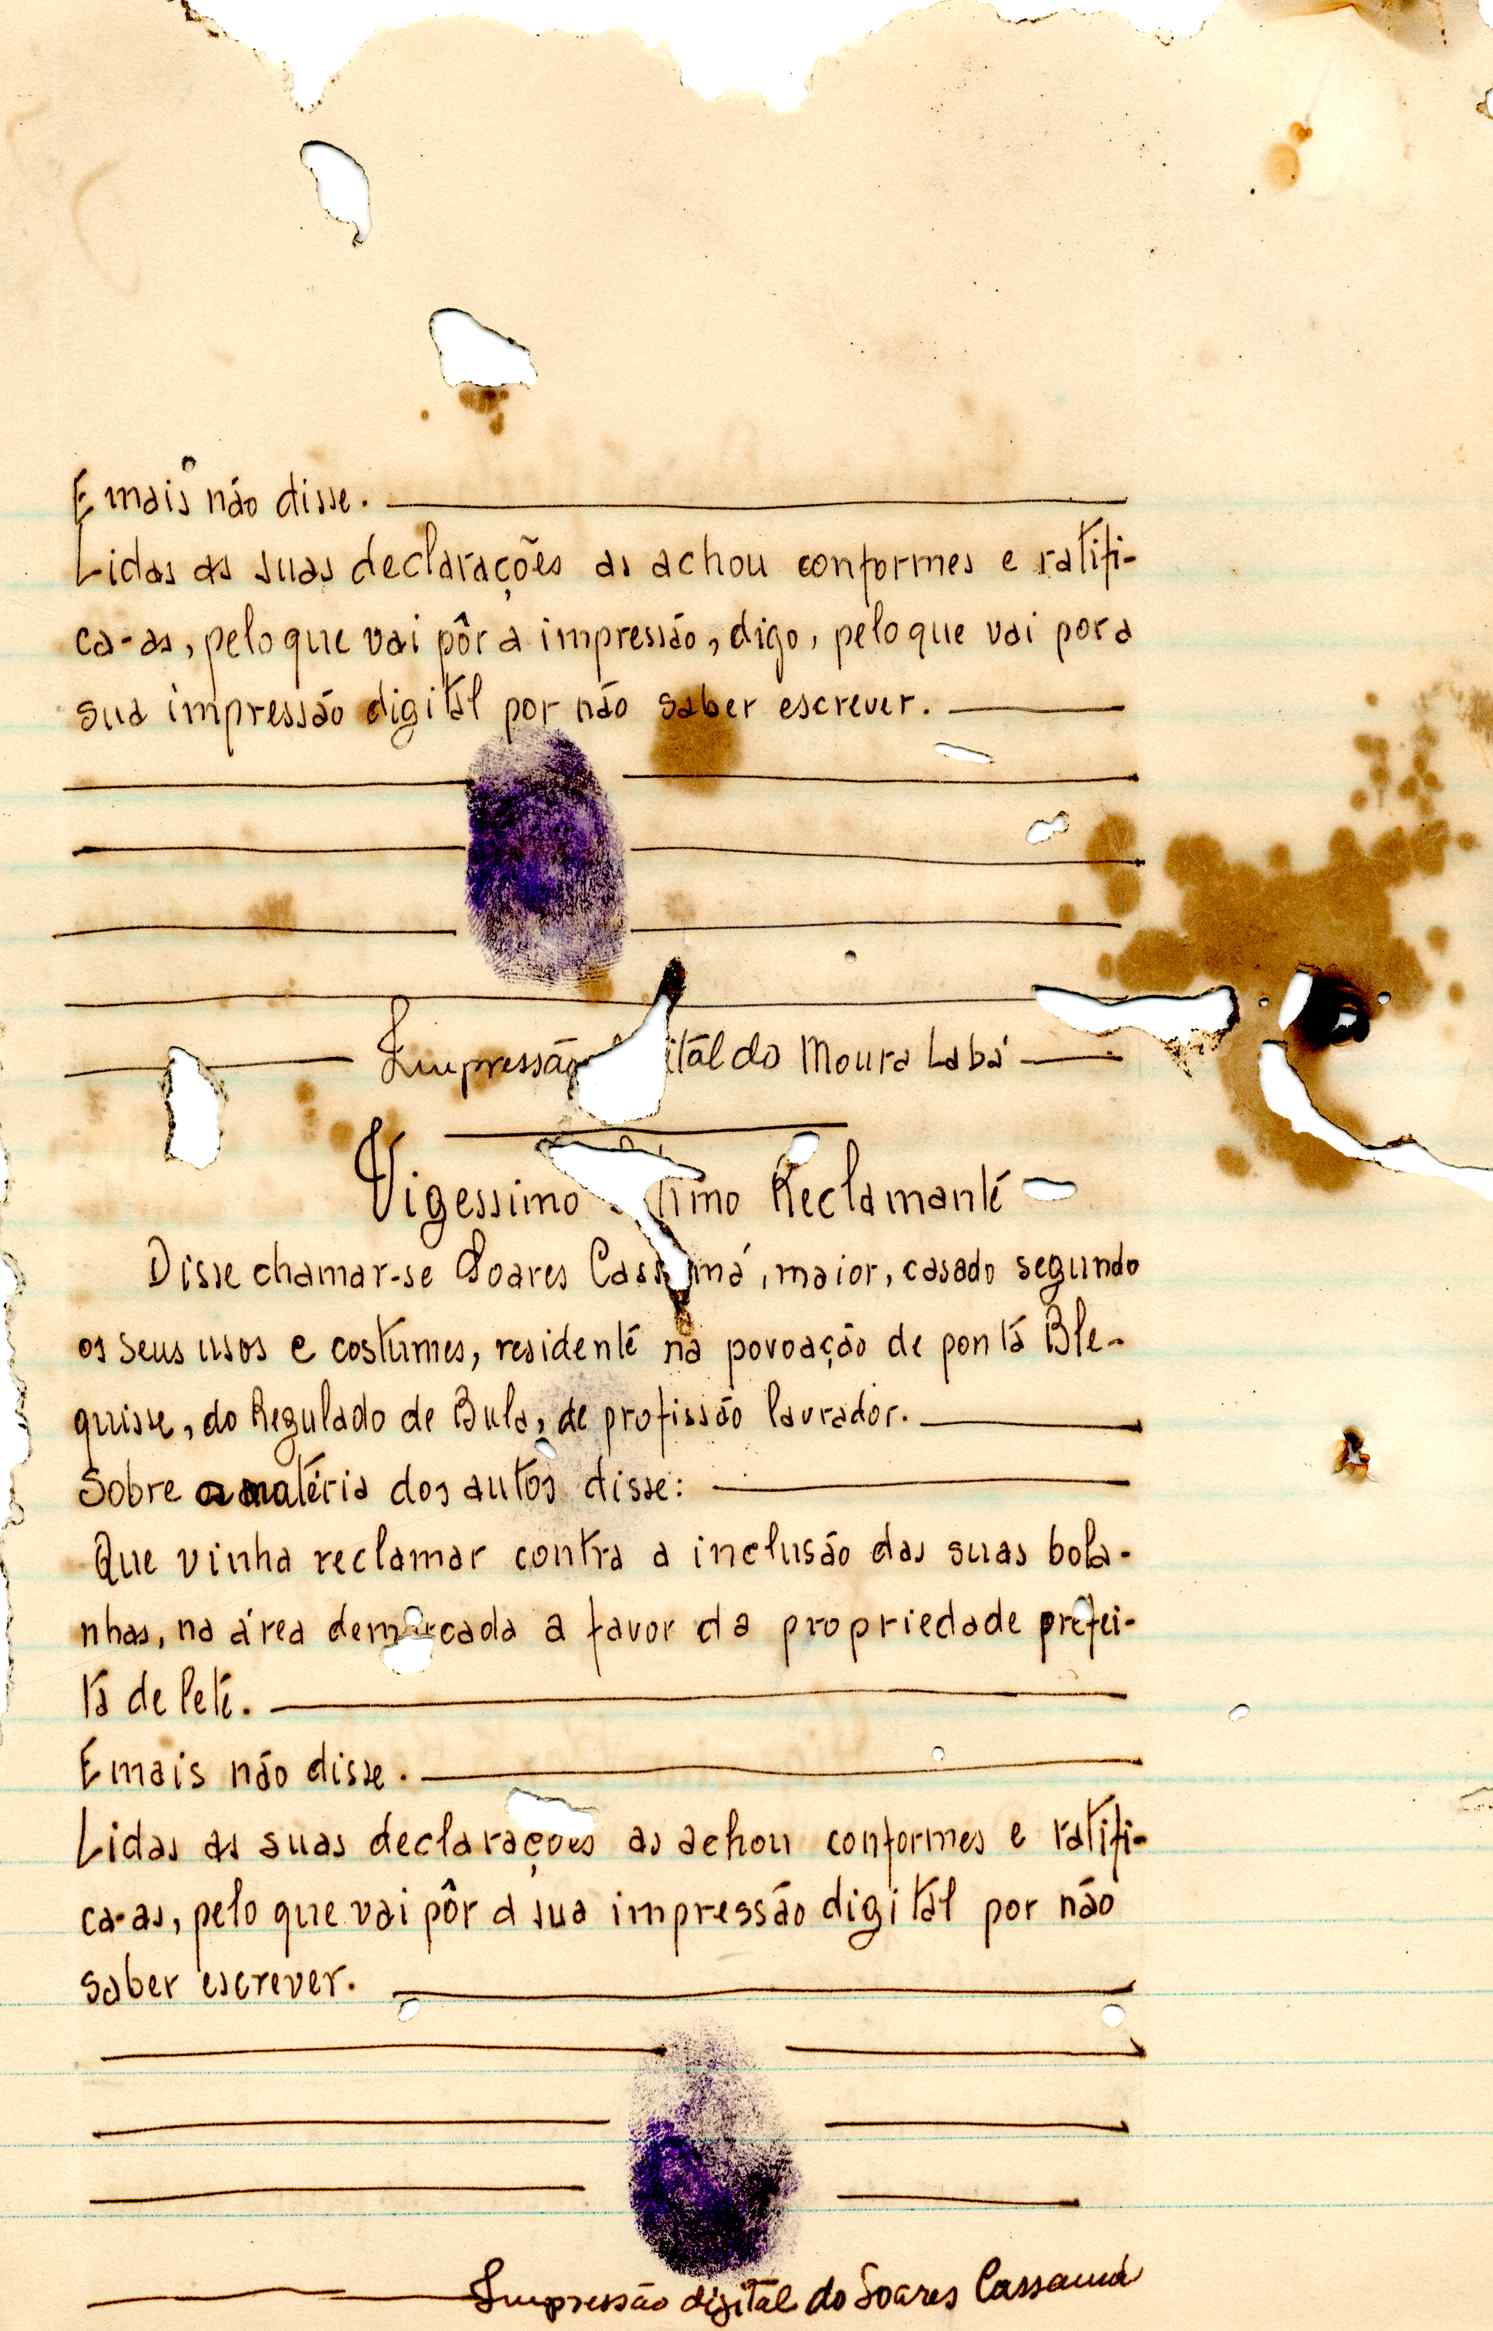 E mais não disse.
Lidas as suas declarações as achou conformes e ratifi-
ca-as, pelo que vai pôr a impressão, digo, pelo que vai por a
sua impressão digital por não saber escrever.
Impressão do Moura Labá
Vigessimo Reclamante
Disse chamar-se Soares , maior, casado segundo
os seus usos e costumes, residente na povoação de ponta Ble-
quisse, do Regulado de Bula, de profissão lavrador.
Sobre a matéria dos autos disse:
Que vinha reclamar contra a inclusão das suas bola-
nhas, na área demarcada a favor da propriedade prefei-
ta de Peté.
E mais não disse.
Lidas as suas declarações as achou conformes e ratifi-
ca-as, pelo que vai pôr a sua impressão digital por não
saber escrever.
Impressão digital do Soares Cassamá